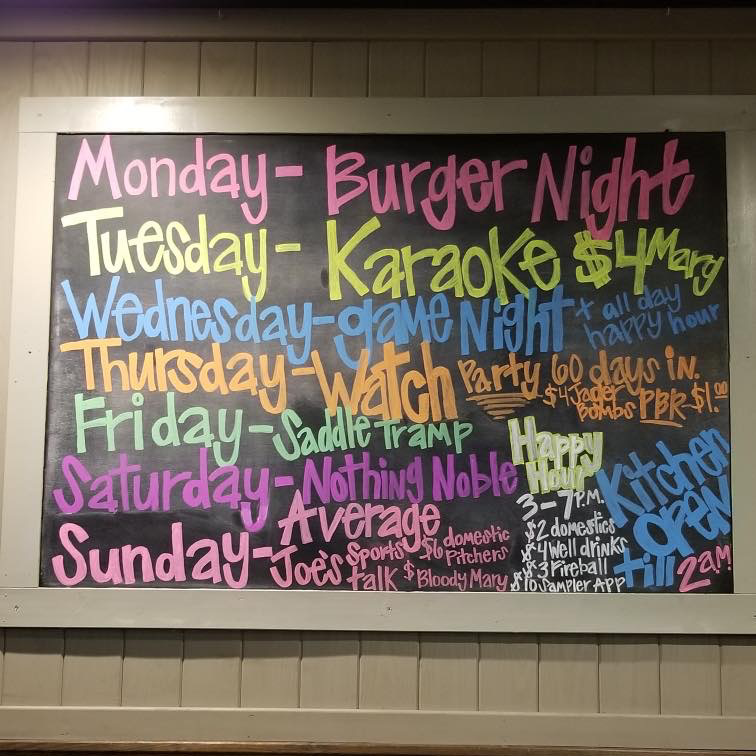 Monday- Burger Night
Tuesday- Karaoke $4 Marg
Wednesday-game Night + all day
happy hour
Thursday-Watch Party 60 days in.
$4 Jager
Bombs PBR-$1.00
Friday-Saddle Tramp
Saturday-Nothing Noble
Sunday-Average
Joe's Sports
talk
$6 domestic
Pitchers
$ Bloody Mary
Happy
Hour
3-7P.M.
$2 domestics
$4 Well drinks
$3 Fireball
$10 Sampler App
Kitchen
OPEN
till 2am